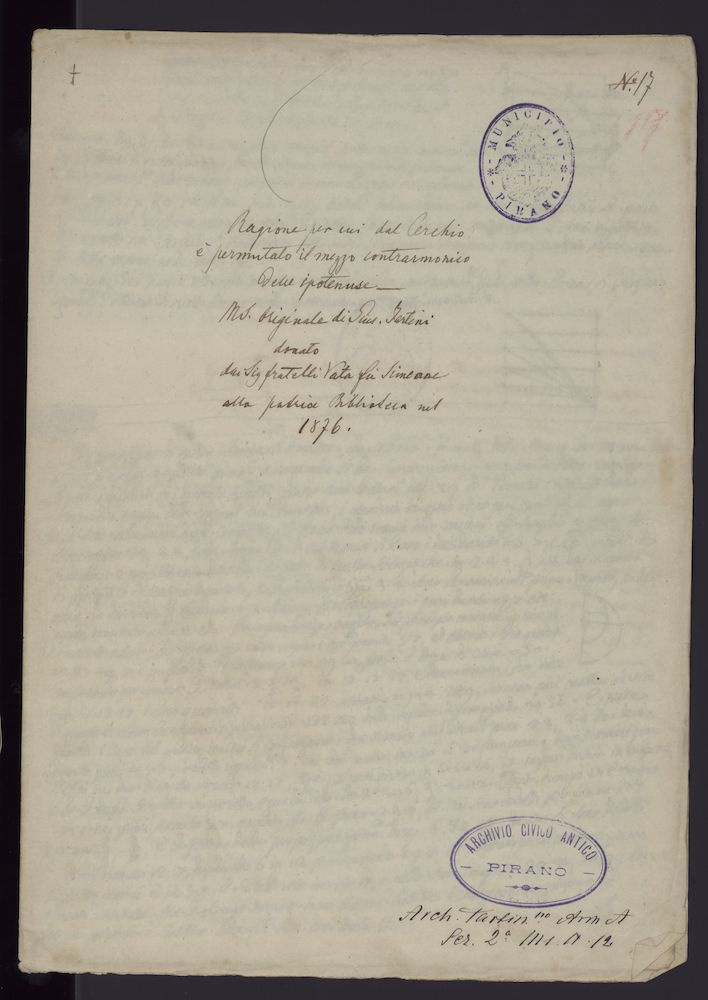 No 17
117
MUNICIPIO
PIRANO
Ragione per cui dal Cerchio
è permutato il mezzo contrarmonico
Delle ipotenuse —
MS. originale di Gius. Tartini
donato
dai Sig fratelli Vata fu Simeone
alla patria Biblioteca nel
1876.
ARCHIVIO CIVICO ANTICO
PIRANO
Arch. Tartin.no Arm A
Ser. 2a A. 12